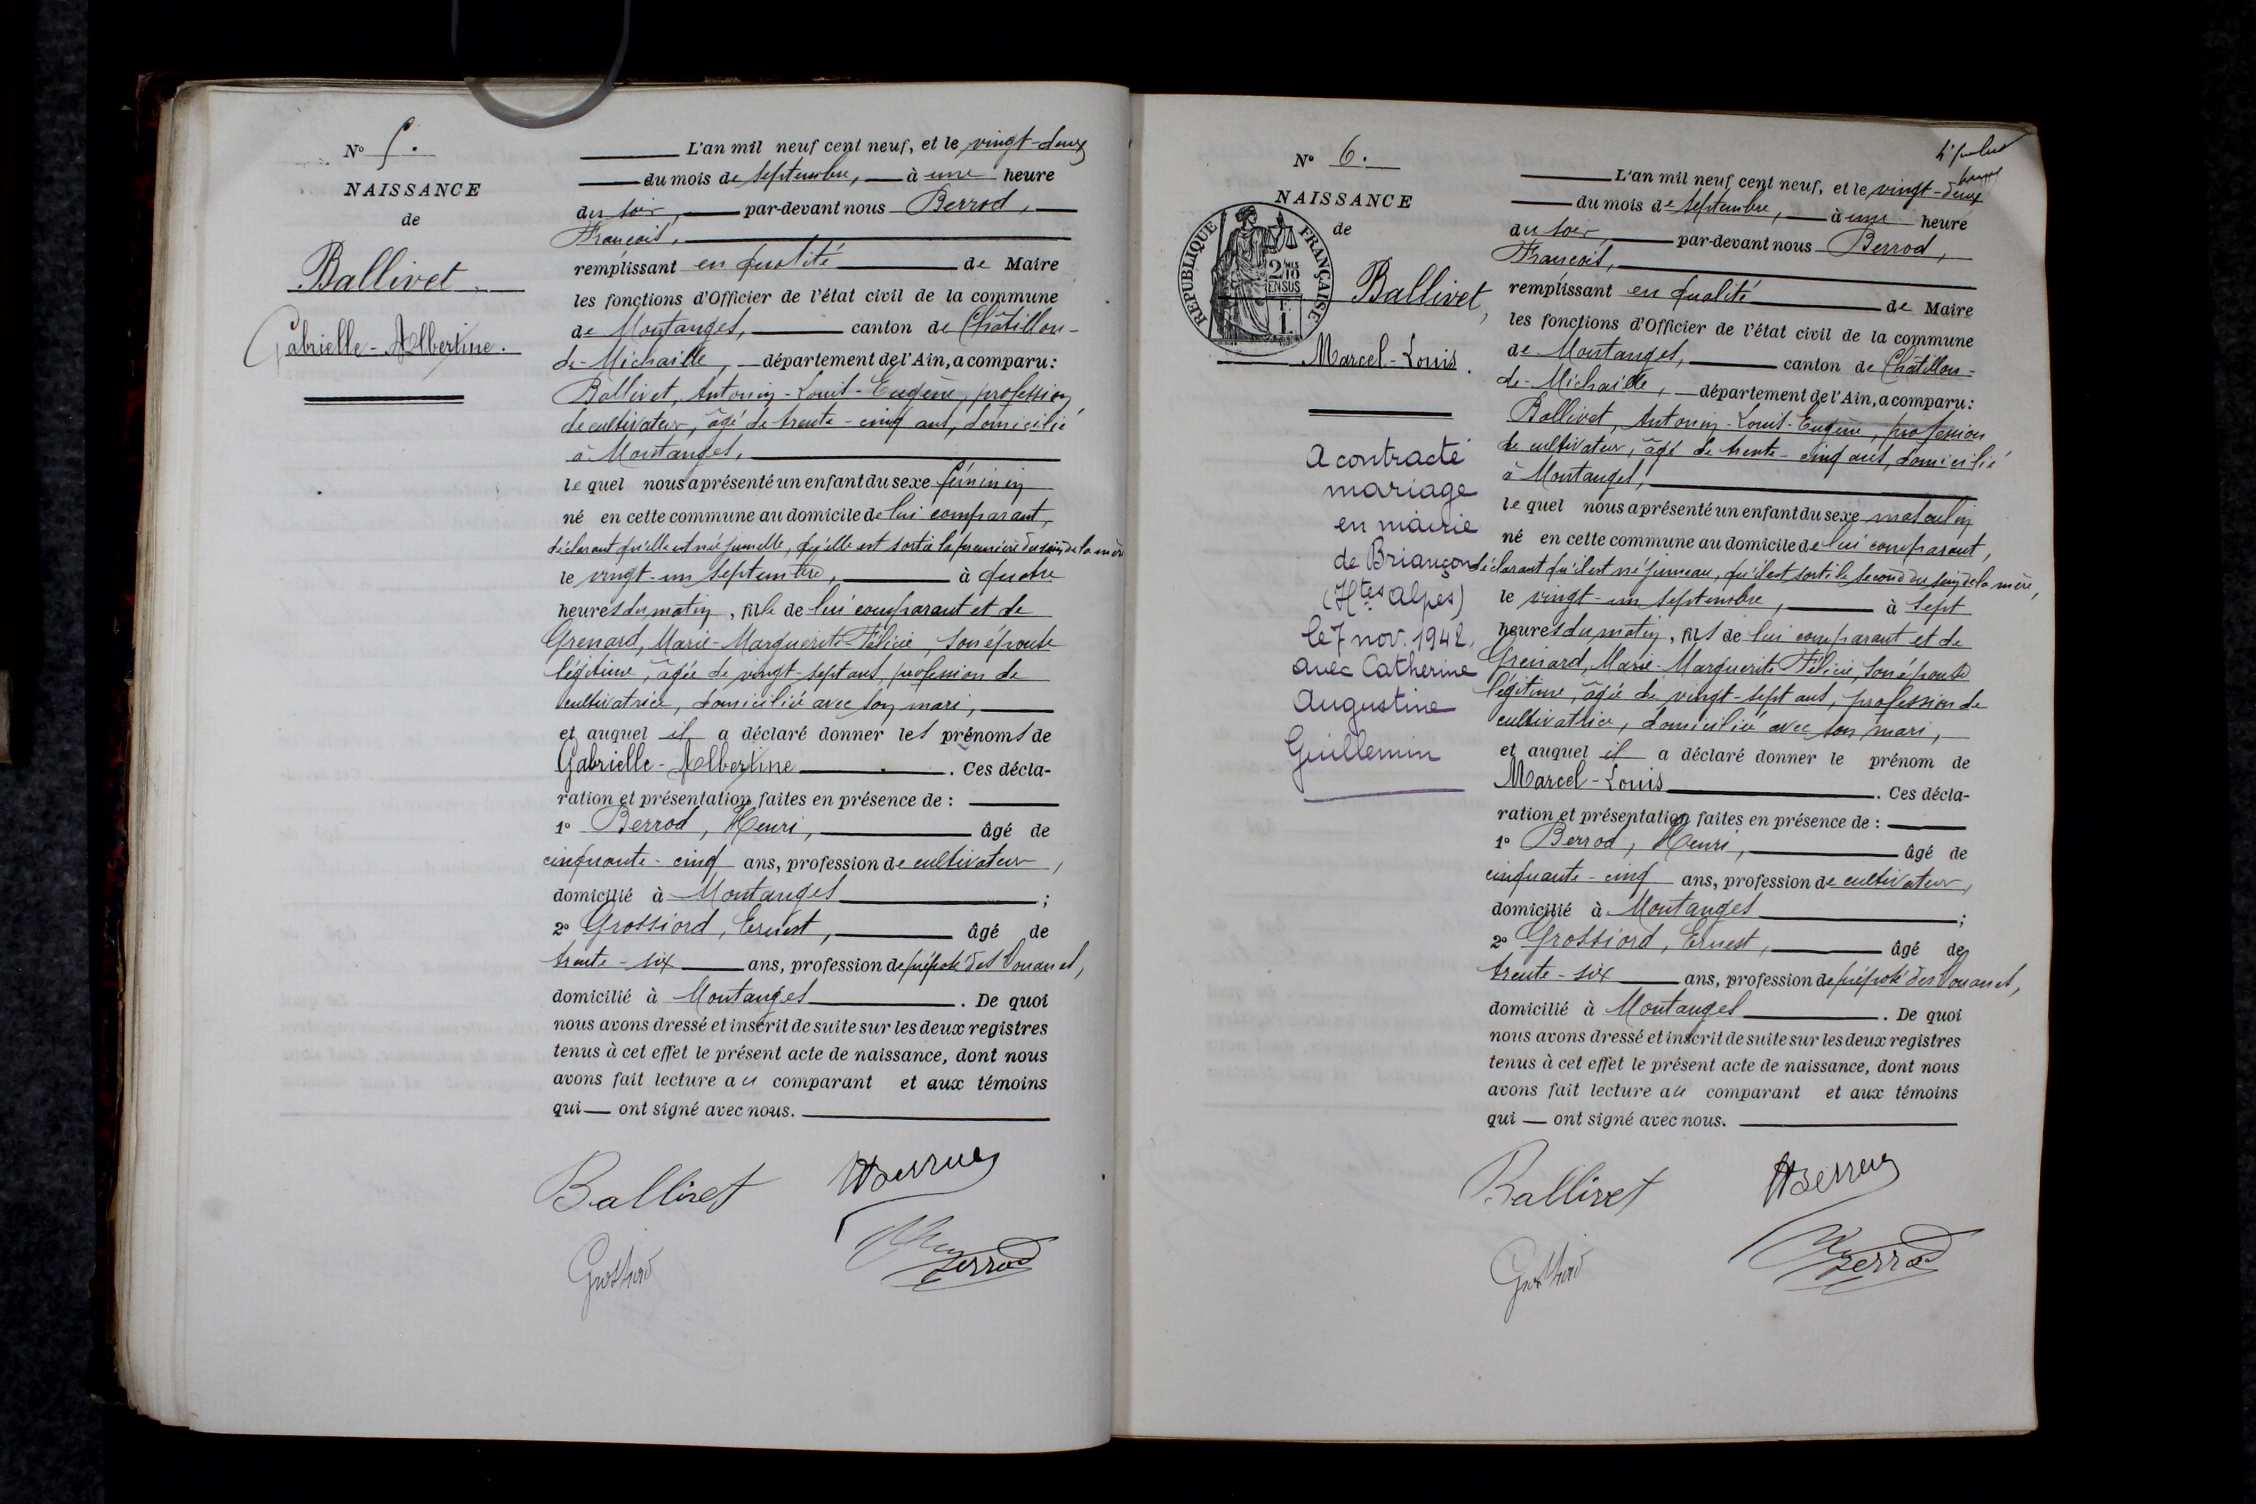 N° 5.
NAISSANCE
de
Ballivet
Gabrielle-Albertine.
L'an mil neuf cent neuf, et le vingt-deux
du mois de septembre, à une heure
du soir, par-devant nous Berrod,
François,
remplissant en qualité de Maire
les fonctions d'Officier de l'état civil de la commune
de Montanges, canton de Châtillon-
de-Michaille, département de l'Ain, a comparu:
Ballivet, Antonin-Louis-Eugène, profession
de cultivateur, âgé de trente-cinq ans, domicilié
à Montanges,
lequel nous a présenté un enfant du sexe féminin
né en cette commune au domicile de lui comparant,
déclarant qu'elle est née jumelle, qu'elle est sortie la première du sein de la mère
le vingt-un septembre, à quatre
heures du matin, fille de lui comparant et de
Grenard, Marie-Marguerite-Félicie, son épouse
légitime, âgée de vingt-sept ans, profession de
cultivatrice, domiciliée avec son mari,
et auquel il a déclaré donner les prénoms de
Gabrielle-Albertine. Ces décla-
ration et présentation faites en présence de :
1° Berrod, Henri, âgé de
cinquante-cinq ans, profession de cultivateur,
domicilié à Montanges ;
2° Grossiord, Ernest, âgé de
trente-six ans, profession de préposé des Douanes,
domicilié à Montanges. De quoi
nous avons dressé et inscrit de suite sur les deux registres
tenus à cet effet le présent acte de naissance, dont nous
avons fait lecture au comparant et aux témoins
qui ont signé avec nous.
Ballivet
Grossiord
Berrod
N° 6.
NAISSANCE
de
RÉPUBLIQUE FRANÇAISE
Ballivet,
Marcel-Louis.
A contracté
mariage
en mairie
de Briançon
(Htes Alpes)
le 7 nov. 1942,
avec Catherine
Augustine
Guillemin
L'an mil neuf cent neuf, et le vingt-deux
du mois de septembre, à une heure
du soir, par-devant nous Berrod,
François,
remplissant en qualité de Maire
les fonctions d'Officier de l'état civil de la commune
de Montanges, canton de Châtillon-
de-Michaille, département de l'Ain, a comparu:
Ballivet, Antonin-Louis-Eugène, profession
de cultivateur, âgé de trente-cinq ans, domicilié
à Montanges,
lequel nous a présenté un enfant du sexe masculin
né en cette commune au domicile de lui comparant,
déclarant qu'il est né jumeau, qu'il est sorti le second du sein de la mère,
le vingt-un septembre, à sept
heures du matin, fils de lui comparant et de
Grenard, Marie-Marguerite Félicie, son épouse
légitime, âgée de vingt-sept ans, profession de
cultivatrice, domiciliée avec son mari,
et auquel il a déclaré donner le prénom de
Marcel-Louis. Ces décla-
ration et présentation faites en présence de :
1° Berrod, Henri, âgé de
cinquante-cinq ans, profession de cultivateur,
domicilié à Montanges ;
2° Grossiord, Ernest, âgé de
trente-six ans, profession de préposé des Douanes,
domicilié à Montanges. De quoi
nous avons dressé et inscrit de suite sur les deux registres
tenus à cet effet le présent acte de naissance, dont nous
avons fait lecture au comparant et aux témoins
qui ont signé avec nous.
Ballivet
Grossiord
Berrod